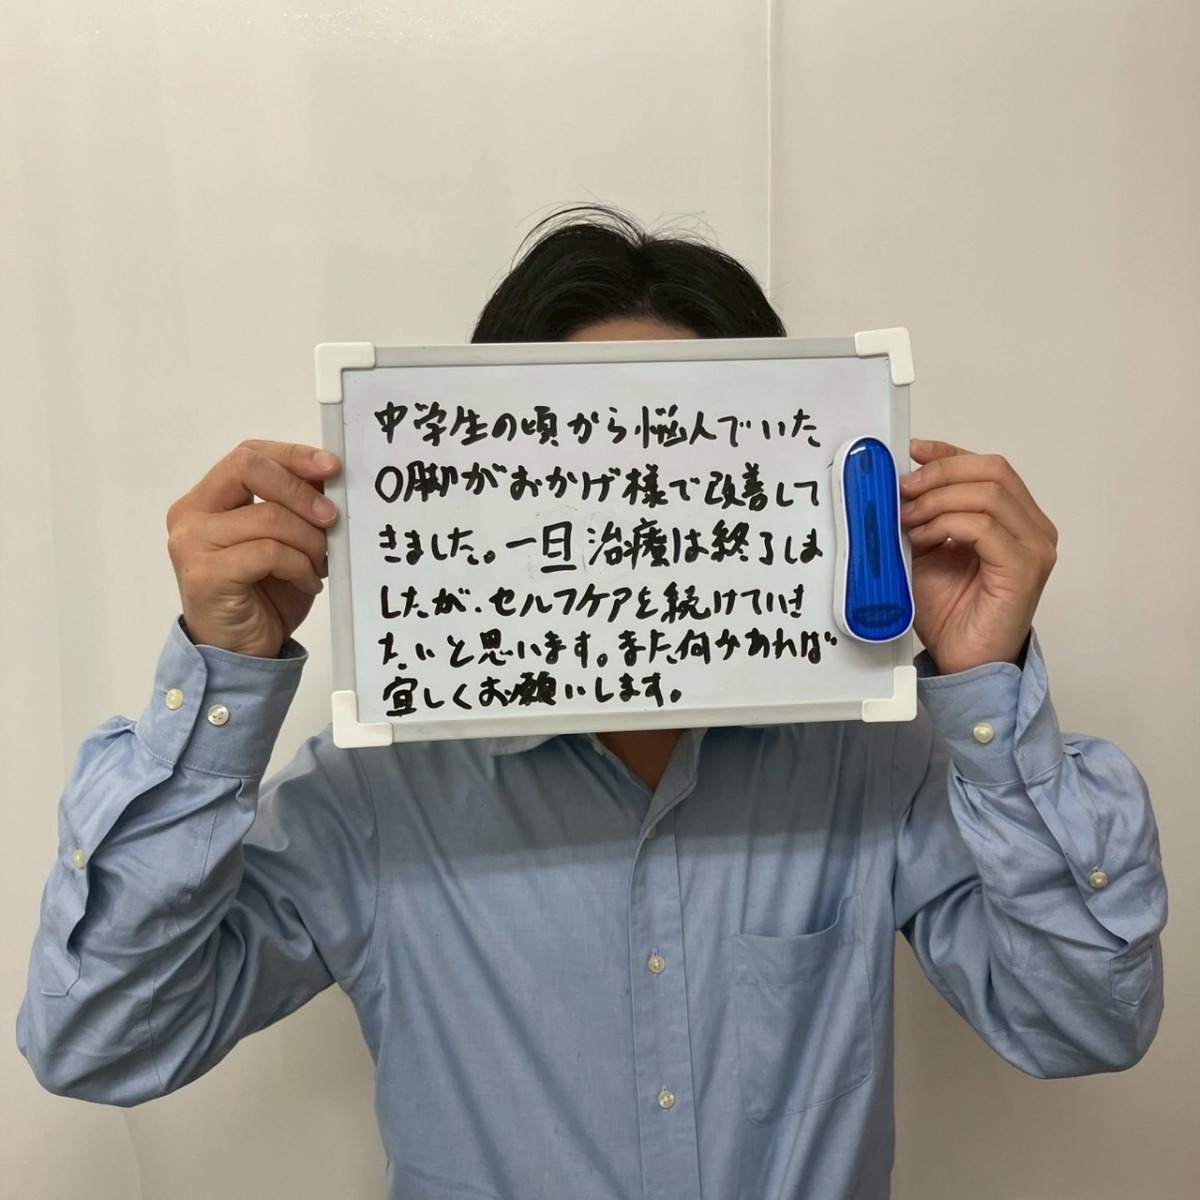 中学生の頃から悩んでいた
O脚がおかげ様で改善して
きました。一旦治療は終了しま
したが、セルフケアを続けていき
たいと思います。また何かあれば
宜しくお願いします。